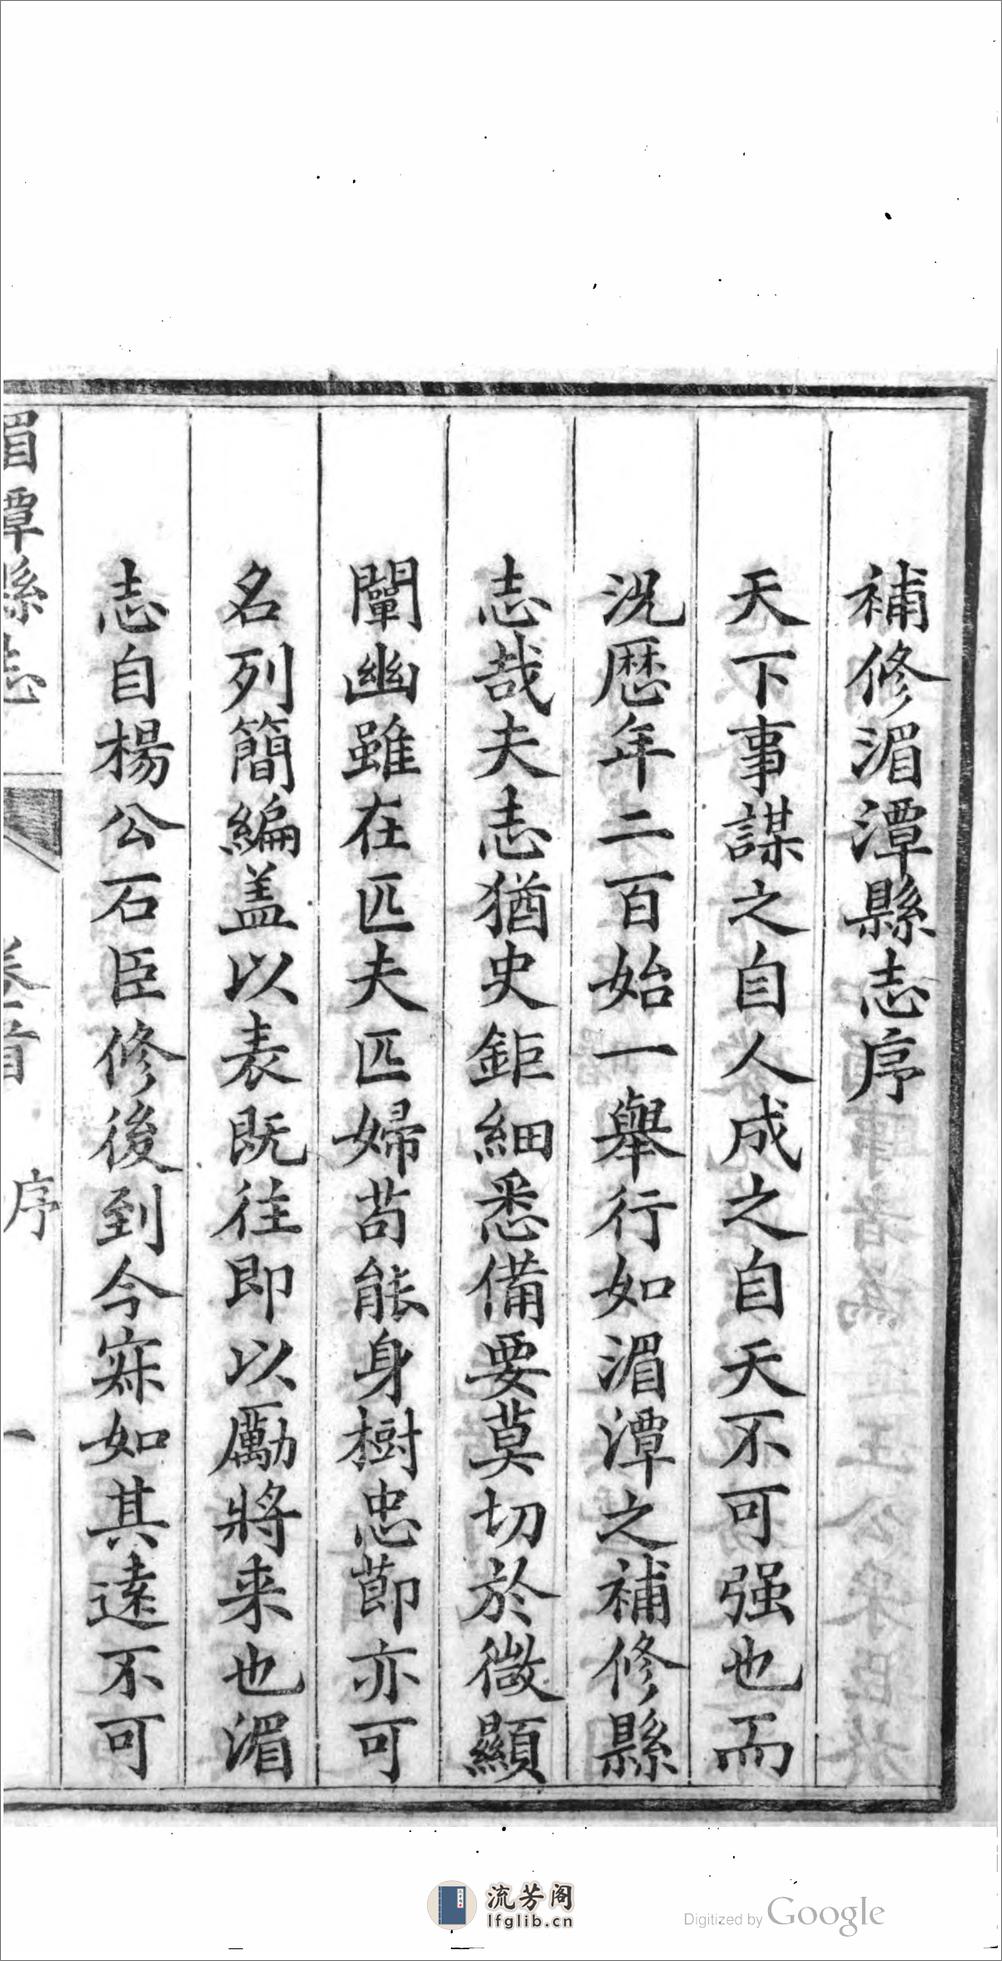 補修湄潭縣志序
天下事謀之自人成之自天不可强也而
況歴年二百始一舉行如湄潭之補修縣
志哉夫志猶史鉅細悉備要莫切於微顯
闡幽雖在匹夫匹婦苟能身樹忠節亦可
名列簡編盖以表既往即以勵將来也湄
志自楊公石臣修後到今寂如其遠不可
湄潭縣志 卷首 序 一
流芳阁
lfglib.cn
Digitized by Google